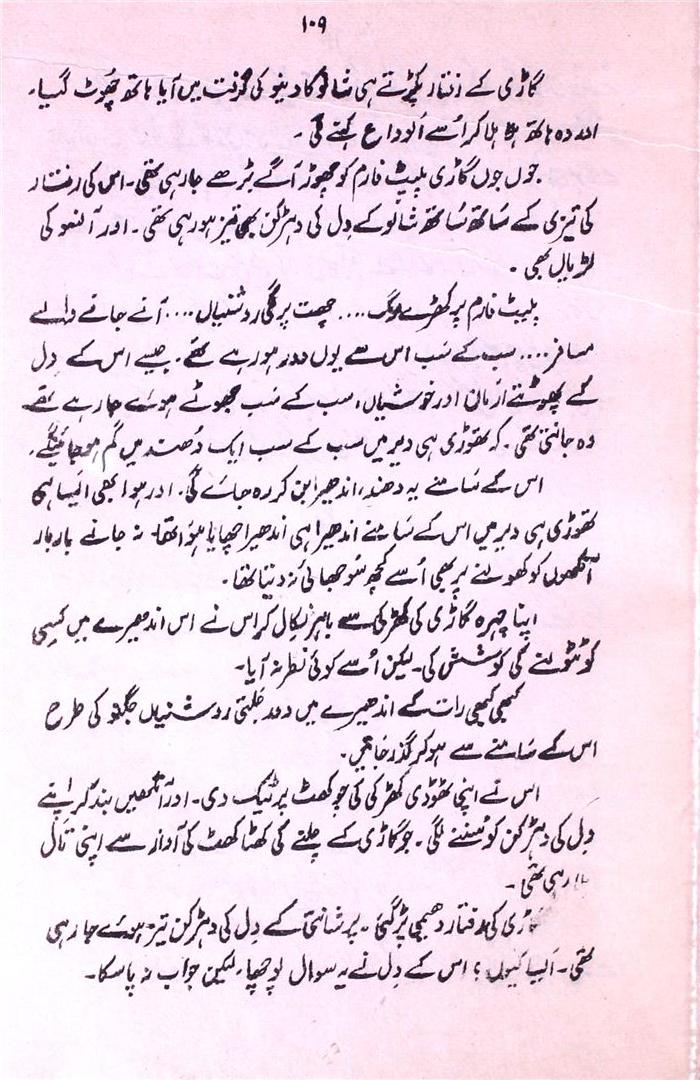 ۱۰۹
گاڑی کے رفتار پکڑتے ہی شانو کا دینو کی گرفت میں آیا ہاتھ چھوٹ گیا۔
اور وہ ہاتھ ہلا ہلا کر اُسے اَلوداع کہنے لگی۔
جوں جوں گاڑی پلیٹ فارم کو چھوڑ آگے بڑھے جا رہی تھی۔ اس کی رفتار
کی تیزی کے ساتھ ساتھ شالو کے دِل کی دھڑکن بھی تیز ہو رہی تھی۔ اور آنسو کی
لڑیاں بھی۔
پلیٹ فارم پر کھڑے لوگ .... چھت پر لگی روشنیاں .... آنے جانے والے
مسافر .... سب کے سب اس سے یوں دور ہو رہے تھے۔ جیسے اس کے دل
کے پھوٹتے ارمان اور خوشیاں، سب کے سب جھوٹے ہوئے جا رہے تھے
وہ جانتی تھی۔ کہ تھوڑی ہی دیر میں سب کے سب ایک دُھند میں گم ہو جائینگے۔
اس کے سامنے یہ دھند، اندھیرا بن کر رہ جائے گی۔ اور ہوا بھی ایسا ہی
تھوڑی ہی دیر میں اس کے سامنے اندھیرا ہی اندھیرا چھایا ہوا تھا۔ نہ جانے بار بار
آنکھوں کو کھولنے پر بھی اُسے کچھ سُوجھائی نہ دیتا تھا۔
اپنا چہرہ گاڑی کی کھڑکی سے باہر نکال کر اس نے اس اندھیرے میں کیسی
کو ٹٹولنے کی کوشش کی۔ لیکن اُسے کوئی نظر نہ آیا۔
کبھی کبھی رات کے اندھیرے میں دور جلتی روشنیاں جگنو کی طرح
اس کے سامنے سے ہو کر گذر جاتیں۔
اس نے اپنی ٹھوڑی کھڑکی کی چوکھٹ پر ٹیک دی۔ اور آنکھیں بند کر اپنے
دِل کی دھڑکن کو سُننے لگی۔ جو گاڑی کے چلنے کی کھٹا کھٹ کی آواز سے اپنی تال
رہی تھی۔
گاڑی کی رفتار دھیمی پڑ گئی۔ پر شانتی کے دِل کی دھڑکن تیز ہوئے جا رہی
تھی۔ اَیسا کیوں؟ اس کے دِل نے یہ سوال پوچھا، لیکن جواب نہ پا سکا۔